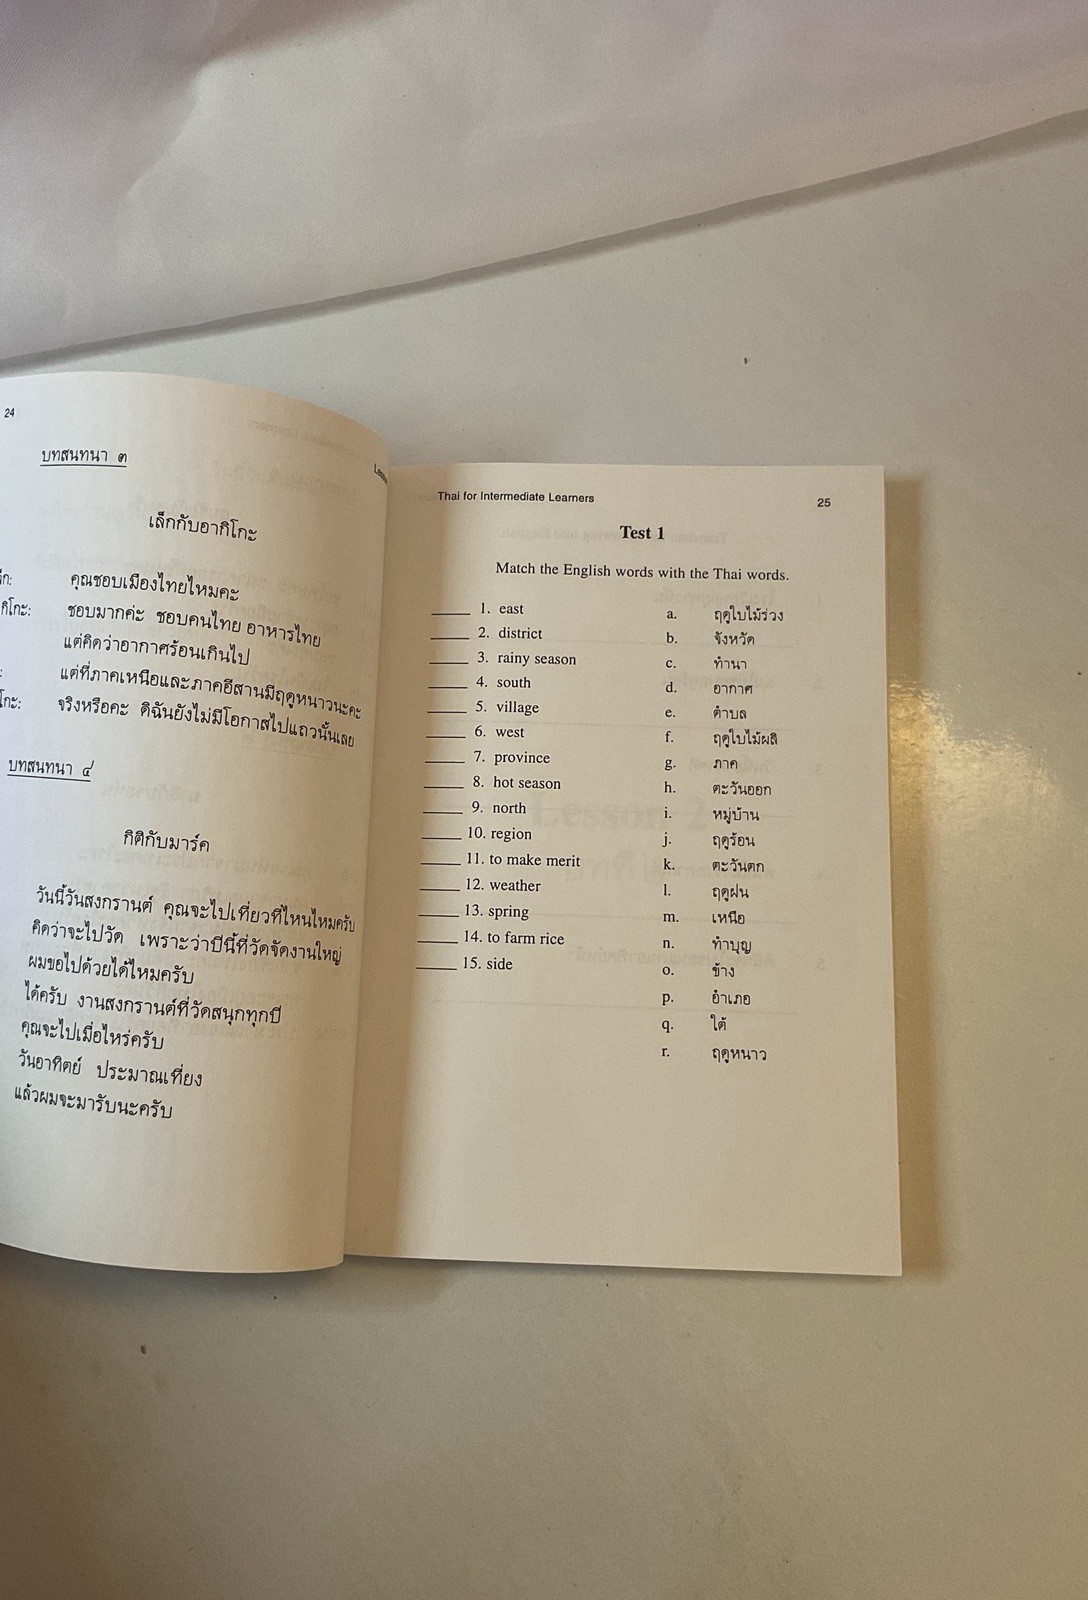 24
บทสนทนา ๓
เล็กกับอากิโกะ
คุณชอบเมืองไทยไหมคะ
กิโกะ: ชอบมากค่ะ ชอบคนไทย อาหารไทย
แต่คิดว่าอากาศร้อนเกินไป
แต่ที่ภาคเหนือและภาคอีสานมีฤดูหนาวนะคะ
โกะ: จริงหรือคะ ดิฉันยังไม่มีโอกาสไปแถวนั้นเลย
บทสนทนา ๔
กิติกับมาร์ค
วันนี้วันสงกรานต์ คุณจะไปเที่ยวที่ไหนไหมครับ
คิดว่าจะไปวัด เพราะว่าปีนี้ที่วัดจัดงานใหญ่
ผมขอไปด้วยได้ไหมครับ
ได้ครับ งานสงกรานต์ที่วัดสนุกทุกปี
คุณจะไปเมื่อไหร่ครับ
วันอาทิตย์ ประมาณเที่ยง
แล้วผมจะมารับนะครับ
Thai for Intermediate Learners 25
Test 1
Match the English words with the Thai words.
1. east a. ฤดูใบไม้ร่วง
2. district b. จังหวัด
3. rainy season c. ทำนา
4. south d. อากาศ
5. village e. ตำบล
6. west f. ฤดูใบไม้ผลิ
7. province g. ภาค
8. hot season h. ตะวันออก
9. north i. หมู่บ้าน
10. region j. ฤดูร้อน
11. to make merit k. ตะวันตก
12. weather l. ฤดูฝน
13. spring m. เหนือ
14. to farm rice n. ทำบุญ
15. side o. ข้าง
p. อำเภอ
q. ใต้
r. ฤดูหนาว